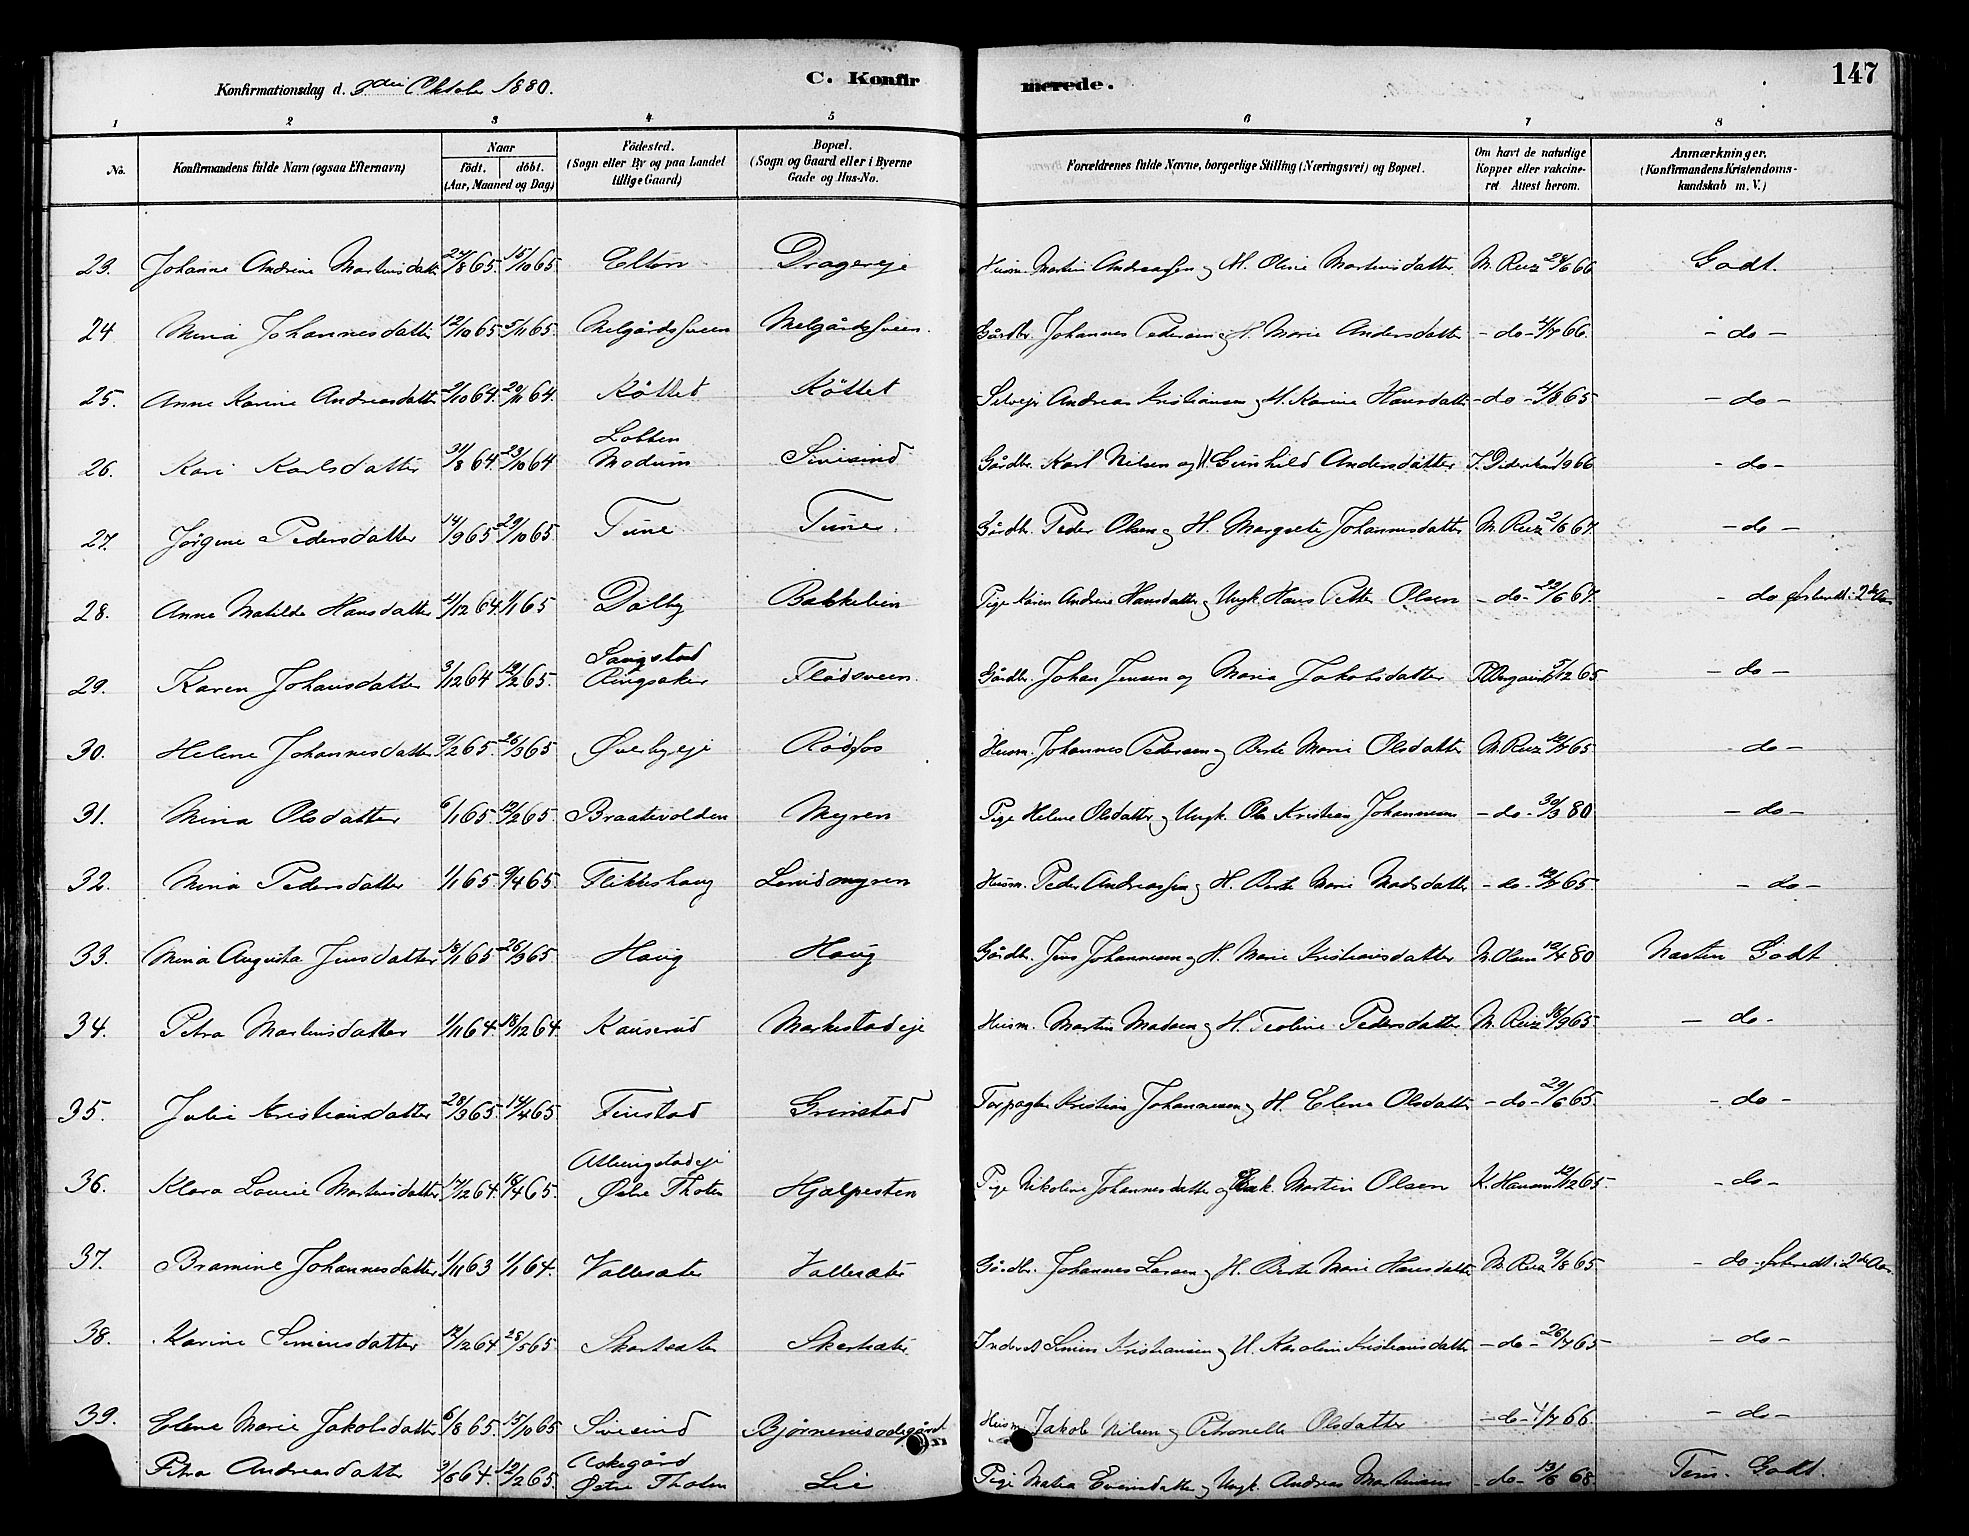 147
Konfirmationsdag d. 3die Oktober 1880.
C. Konfir merede.
1 2 3 4 5 6 7 8
No. Konfirmandens fulde Navn (ogsaa Efternavn) Naar født. døbt. (Aar, Maaned og Dag) Fødested. (Sogn eller By og paa Landet tillige Gaard) Bopæl. (Sogn og Gaard eller i Byerne Gade og Hus-No. Forældrenes fulde Navne, borgerlige Stilling (Næringsvei) og Bopæl. Om havt de naturlige Kopper eller vakcineret Attest herom. Anmærkninger. (Konfirmandens Kristendomskundskab m. V.)
23. Johanne Andrine Martinsdatt 24/8 65. 15/10 65. Elton Dragereje Husm. Martin Andreassen og H. Oline Martinsdatter M. Reiz 24/6 66 Godt.
24 Mina Johannesdatter 12/10 65 5/11 65. Melgårdssveen Melgårdssveen. Gårdbr. Johannes Pedersen og H. Marie Andersdatter - do - 4/7 66. - do -
25. Anne Karine Andreasdatter 2/10 64. 20/11 64. Kölled Költet Selvejr Andreas Kristiansen og H. Karine Hansdatter - do - 4/8 65 - do -
26. Kari Karlsdatter 31/8 64. 23/10 64 Lobben Modum Sivesind Gårdbr. Karl Nilsen og H. Gunhild Andersdatter J. Diderikson 1/9 66 - do -
27. Jørgine Pedersdatter 14/9 65 29/10 65. Tune Tune. Gårdbr. Peder Olsen og H. Margrete Johannesdatter M. Reiz 2/6 67. - do -
28. Anne Matilde Hansdatter 2/12 64. 1/1 65 Dalby Bakkelien Pige Karen Andrine Hansdatter og Ungk. Hans Petter Olsen - do - 22/6 67. - do forberedt i 2det Aar
29. Karen Johansdatter 3/12 64 19/2 65. Saugstad Ringsaker Flodsveen. Gårdbr. Johan Jensen og Maria Jakobsdatter 5/12 65 - do -
30. Helene Johannesdatter 9/2 65. 26/3 65 Øverbyeje Rødfos Husm. Johannes Pedersen og Berte Marie Olsdatter M. Reiz 12/7 65 - do -
31. Mina Olsdatter 6/1 65. 12/2 65. Braatevolden Myren Pige Helene Olsdatter og Ungk. Ole Kristian Johannesen - do - 30/3 80 - do -
32. Mina Pedersdatter 1/1 65 9/4 65. Flikkeshaug Lundmyren Husm. Peder Andreassen og H. Berte Marie Madsdatter - do - 12/7 65 - do -
33. Mina Augusta Jensdatter 18/1 65 26/3 65. Haug Haug Gårdbr. Jens Johannesen og H. Marie Kristiansdatter M. Olsen 12/4 80 Næsten Godt
34. Petra Martinsdatter 1/11 64. 18/12 64. Kauserud Markestadeje Husm. Martin Madsen og H. Teoline Pedersdatter M. Reiz 18/9 65 - do -
35. Julie Kristiansdatter 28/3 65. 14/4 65 Finstad Grinstad Forpagter Kristian Johannesen og H. Elene Olsdatter - do - 29/6 65. - do -
36. Klara Lovise Martinsdatter 17/12 64. 16/4 65. Alhungstadeje Østre Thoten Hjalpesten Pige Nikoline Johannesdatter og Enk. Martin Olsen K. Hansen 12/12 65. - do -
37. Bramine Johannesdatter 1/11 63 1/1 64. Vallesæter Vallesæter Gårdbr. Johannes Larsen og H. Berte Marie Hansdatter M. Reiz 9/8 65 - do forberedt i 2det Aar
38. Karine Simensdatter 12/12 64 28/5 65. Skartsæter Skartsæter Inderst Simen Kristiansen og H. Karoline Kristiansdatter - do - 26/7 65 - do -
39. Elene Marie Jakobsdatter 6/8 65. 15/10 65 Sivesind Bjørnerudødegård Husm. Jakob Nilsen og Petronelle Olsdatter - do - 4/7 66 - do -
Petra Andreasdatter 9/6 64. 12/2 65. Askegård Østre Thoten Lie Pige Matea Evensdatter og Ungk. Andreas Martinsen - do - 13/6 68. Tem. Godt.